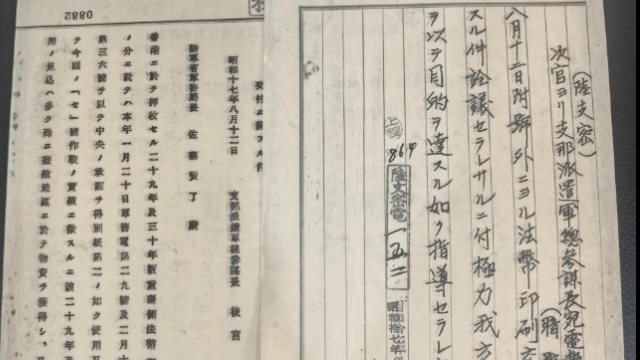 (陸支密)
次官ヨリ支那派遣軍總參謀長宛電
(暗
八月十二日附號外ニヨル法幣印刷方
スル件詮議セラレサルニ付極力我方
ヲ以テ目的ヲ達スル如ク指導セラレ
864
陸支密電一五二
昭和拾七年
昭和十七年八月十二日 支那派遣軍總參謀長 後宮
陸軍省軍務局長 佐藤賢了殿
香港ニ於テ押收セル二十九年及三十年版重慶側法幣
ノ分ニ就テハ本年一月二十日軍務電第二九號及二月十
第三六號ヲ以テ中央ノ承認ヲ得別紙第二ノ如ク使用
テ今回ノ「セ」號作戰ノ實績ニ徴スルニ該二十九年及
用ノ見込ハ多ク殊ニ接敵地區ニ於テ物資ヲ獲得シ、
0882